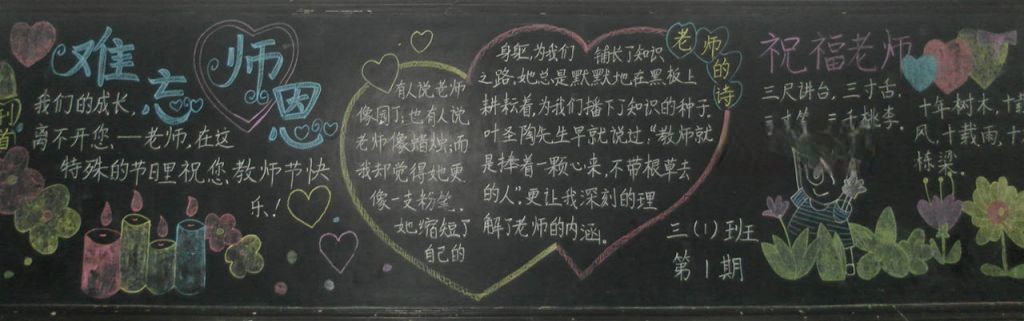 难忘师恩
我们的成长,
离不开您.——老师,在这
特殊的节日里祝您教师节快
乐!
有人说老师
像园丁;也有人说
老师像蜡烛;而
我却觉得她更
像一支粉笔.
她缩短了
自己的
老师的诗
身躯,为我们铺长了知识
之路;她总是默默地在黑板上
耕耘着,为我们播下了知识的种子.
叶圣陶先生早就说过:"教师就
是捧着一颗心来,不带根草去
的人".更让我深刻的理
解了老师的内涵。
三(1)班
第1期
祝福老师
三尺讲台,三寸舌,
三千桃李.
十年树木,十载
风,十载雨,十
栋梁.